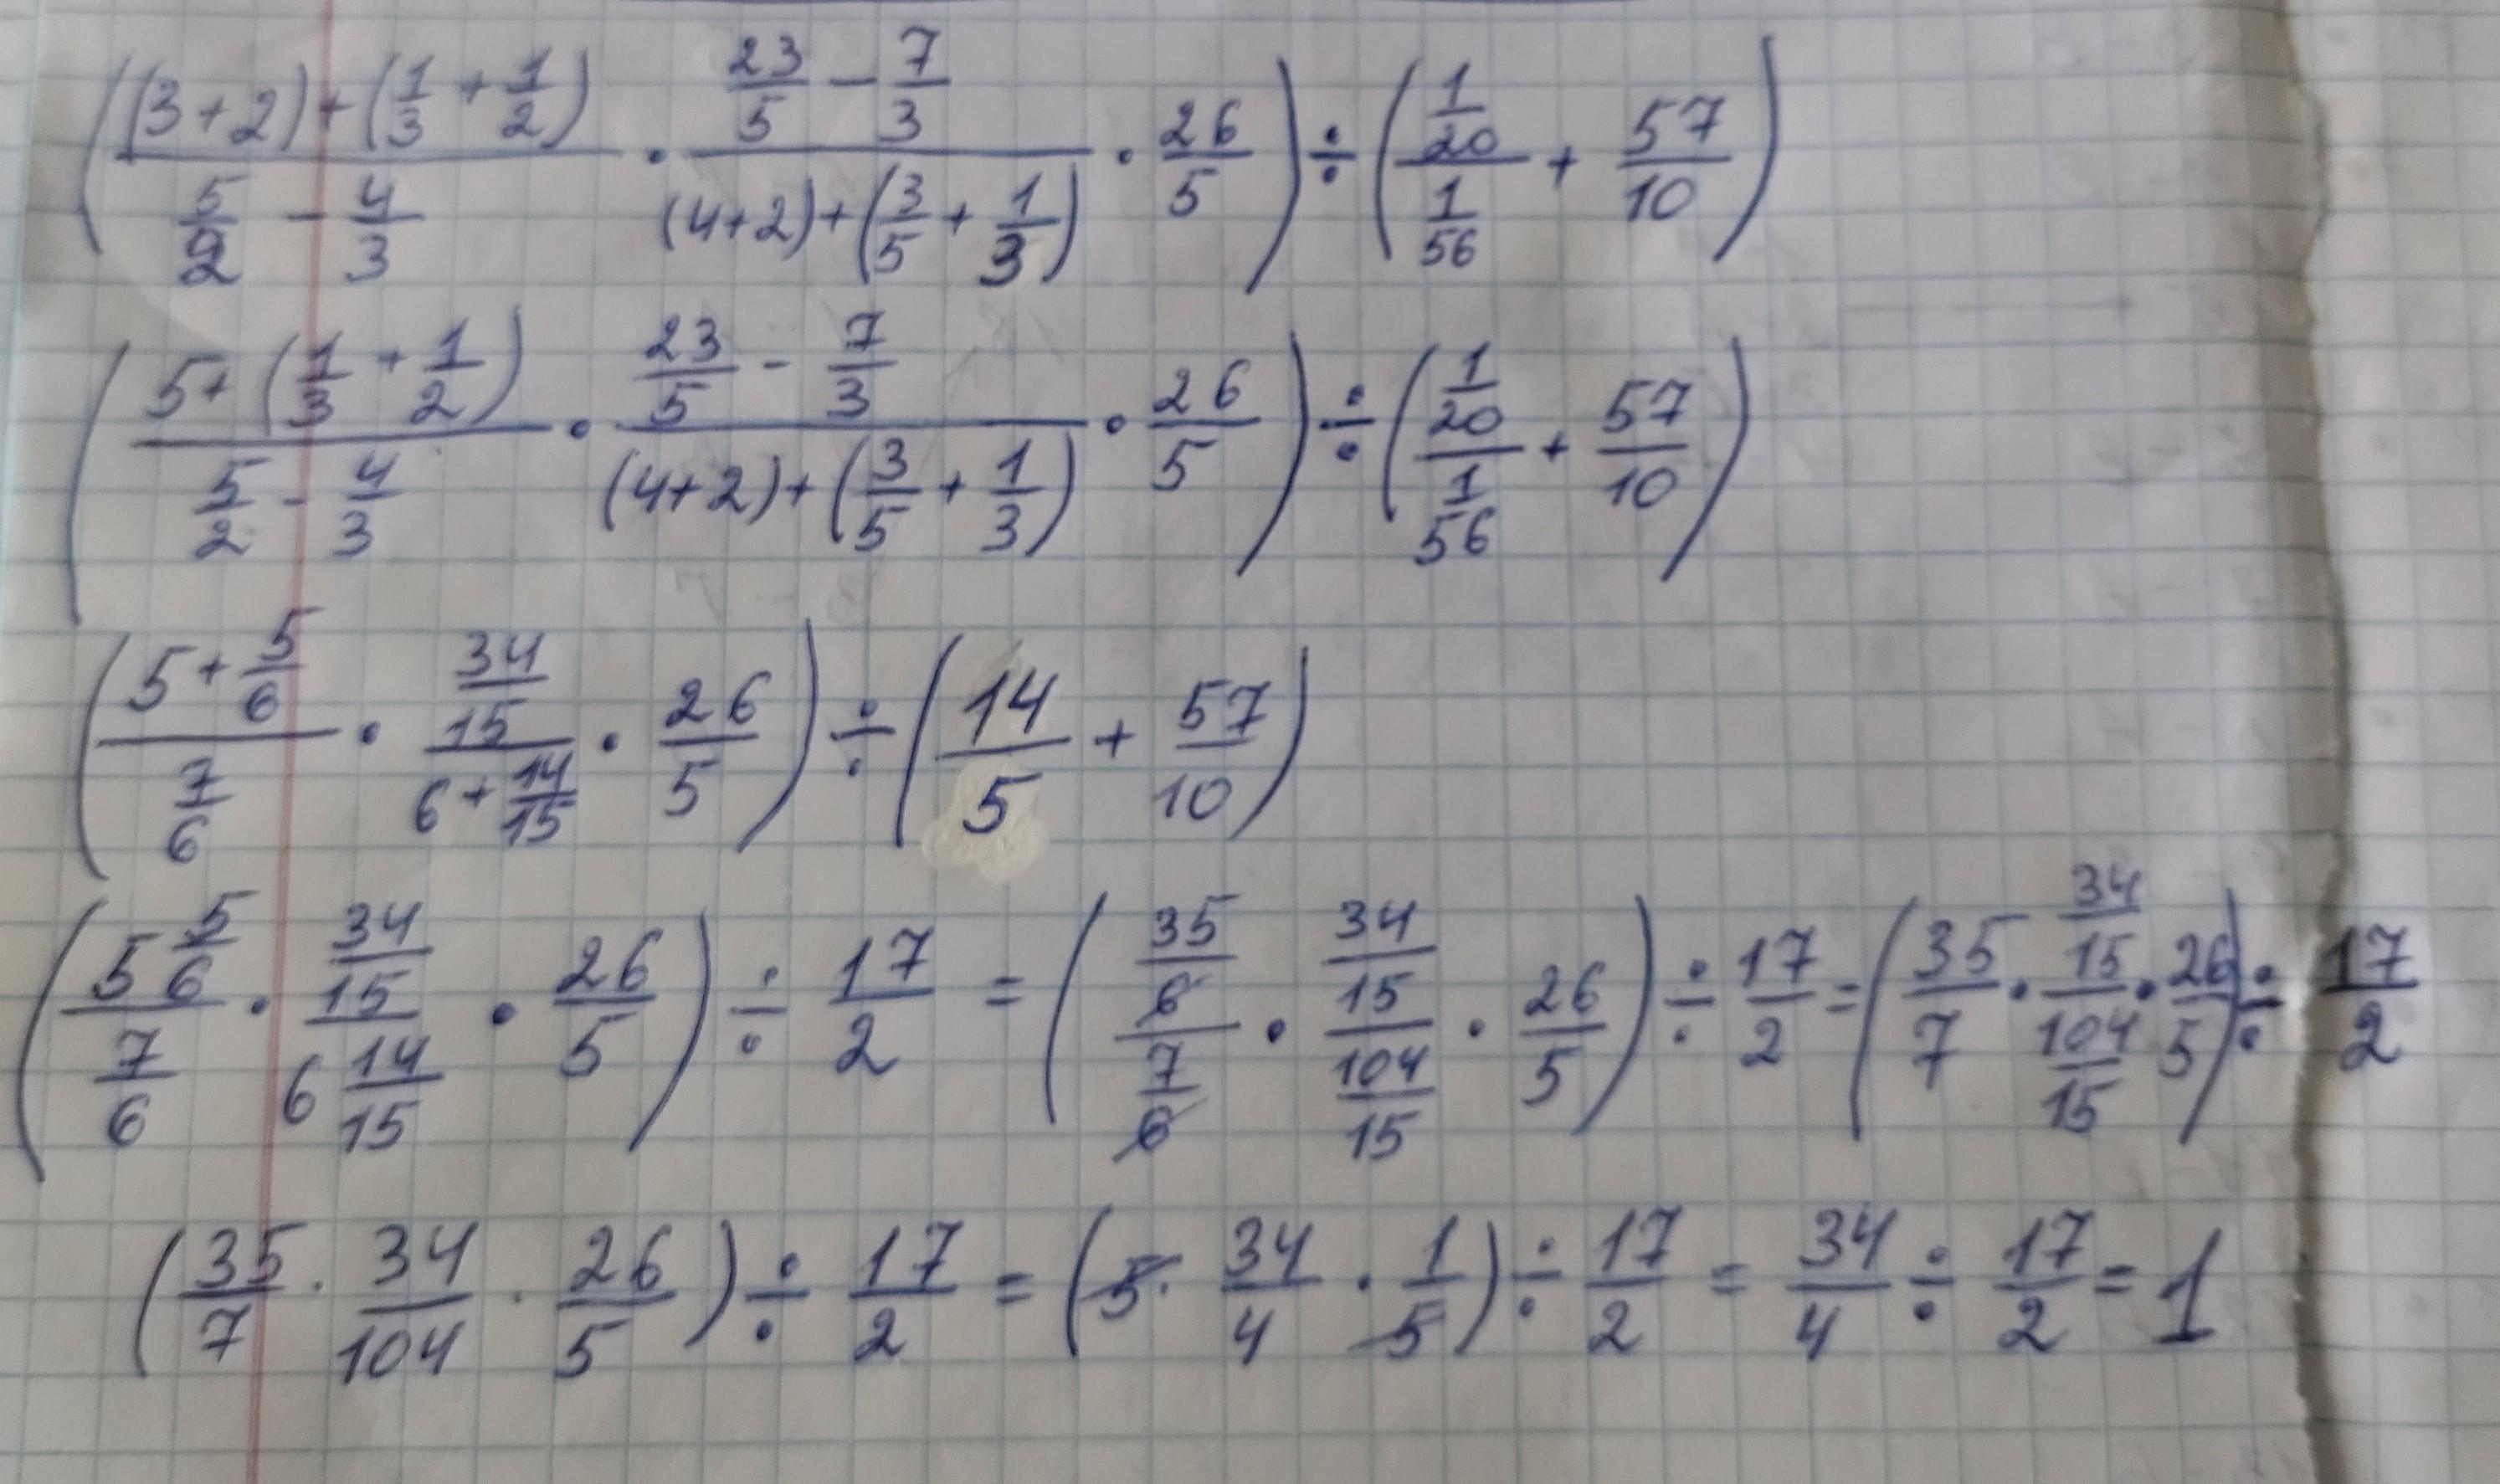 (((3+2)+(1/3+1/2))/(5/2-4/3) · (23/5-7/3)/((4+2)+(3/5+1/3)) · 26/5) ÷ ((1/20)/(1/56)+57/10)
((5+(1/3+1/2))/(5/2-4/3) · (23/5-7/3)/((4+2)+(3/5+1/3)) · 26/5) ÷ ((1/20)/(1/56)+57/10)
((5+5/6)/(7/6) · (34/15)/(6+14/15) · 26/5) ÷ (14/5+57/10)
((5 5/6)/(7/6) · (34/15)/(6 14/15) · 26/5) ÷ 17/2 = ((35/6)/(7/6) · (34/15)/(104/15) · 26/5) ÷ 17/2 = (35/7 · (34/15)/(104/15) · 26/5) ÷ 17/2
(35/7 · 34/104 · 26/5) ÷ 17/2 = (5 · 34/4 · 1/5) ÷ 17/2 = 34/4 ÷ 17/2 = 1